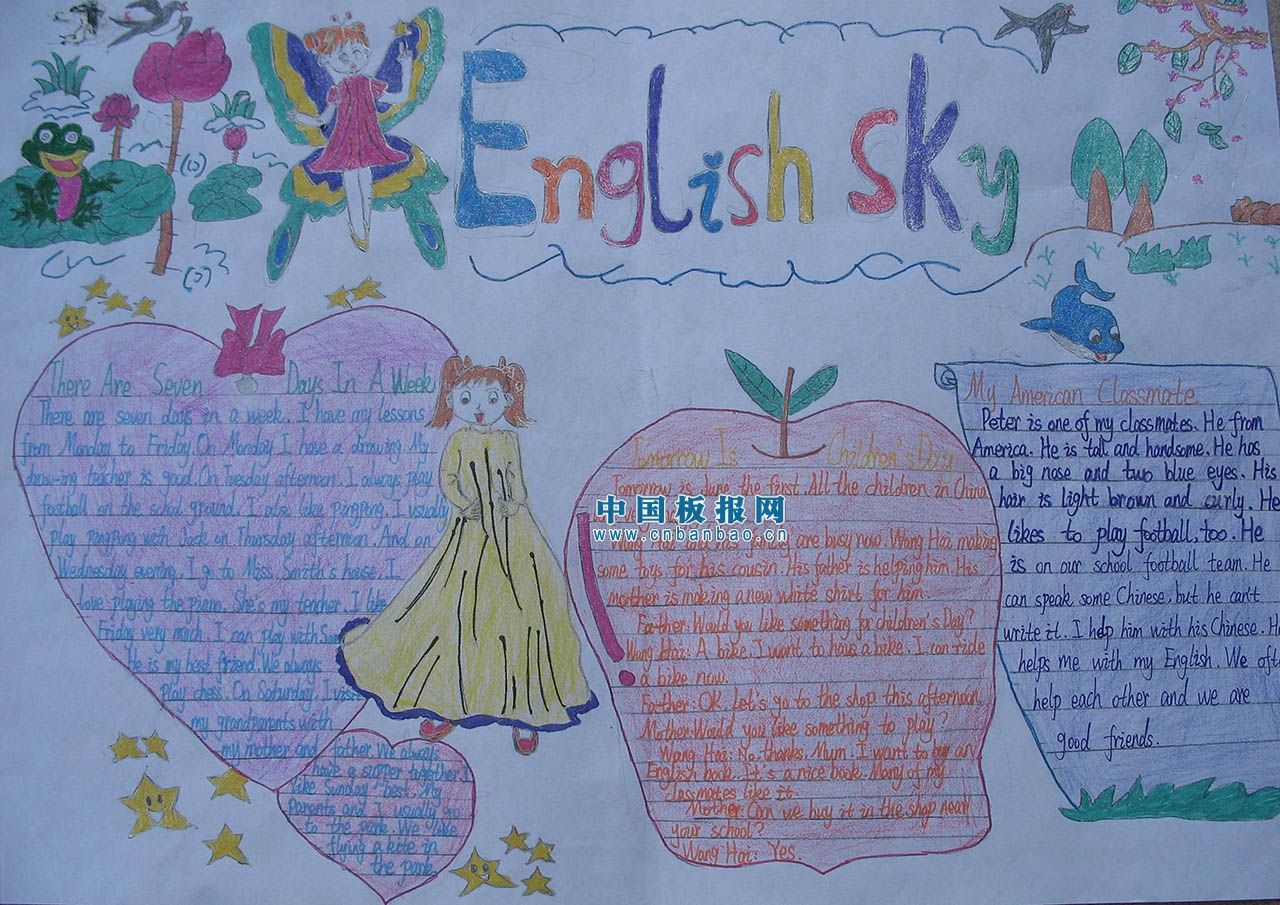 English sky
There Are Seven Days In A Week
There are seven days in a week. I have my lessons
from Monday to Friday. On Monday I have a drawing. My
drawing teacher is good. On Tuesday afternoon. I always play
football on the school ground. I also like PingPong. I usually
play pingpong with Jack on Thursday afternoon. And on
Wednesday evening. I go to Miss. Smith's house. I
love playing the piano. She's my teacher. I like
Friday very much. I can play with Sam
He is my best friend. We always
play chess. On Saturday. I visit
my grandparents with
my mother and father. We always
have a supper together. I
like Sunday best. My
Parents and I usually go
to the park. We like
flying a kite in
the park.
Tomorrow Is Children's Day
Tomorrow is June the first. All the children in China
Wang Hai and his family are busy now. Wang Hai making
some toys for his cousin. His father is helping him. His
mother is making a new white shirt for him.
Farther: Would you like something for children's Day?
Wang Hai: A bike. I want to have a bike. I can ride
a bike now.
Farther: OK. Let's go to the shop this afternoon.
Mother: Would you like something to play?
Wang Hai: No. thanks. Mum. I want to buy an
English book. It's a nice book. Many of my
classmates like it.
Mother: Can we buy it in the shop near
your school?
Wang Hai: Yes.
My American Classmate
Peter is one of my classmates. He from
America. He is tall and handsome. He has
a big nose and two blue eyes. His
hair is light brown and curly. He
likes to play football, too. He
is on our school football team. He
can speak some Chinese, but he can't
write it. I help him with his Chinese. He
helps me with my English. We often
help each other and we are
good friends.
中国板报网
www.cnbanbao.cn